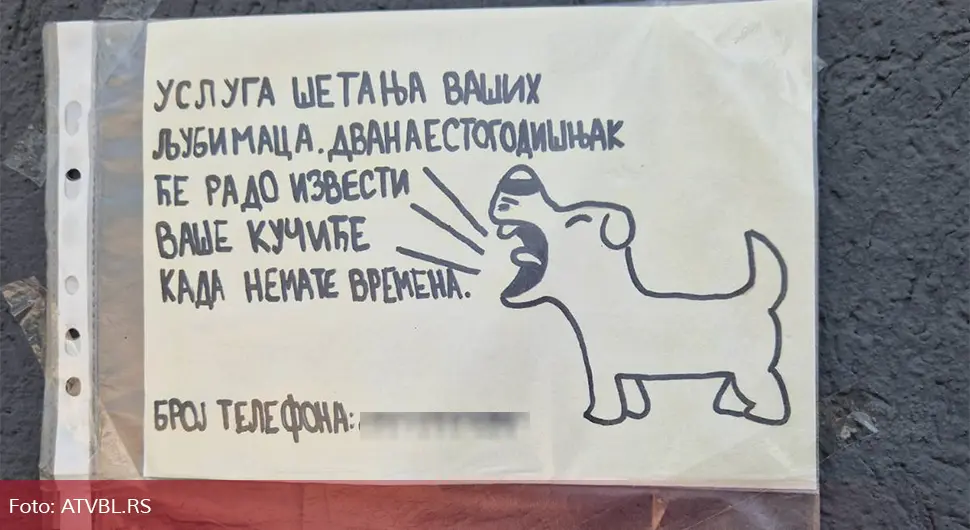 УСЛУГА ШЕТАЊА ВАШИХ
ЉУБИМАЦА. ДВАНАЕСТОГОДИШЊАК
ЋЕ РАДО ИЗВЕСТИ
ВАШЕ КУЧИЋЕ
КАДА НЕМАТЕ ВРЕМЕНА.
БРОЈ ТЕЛЕФОНА:
Foto: ATVBL.RS